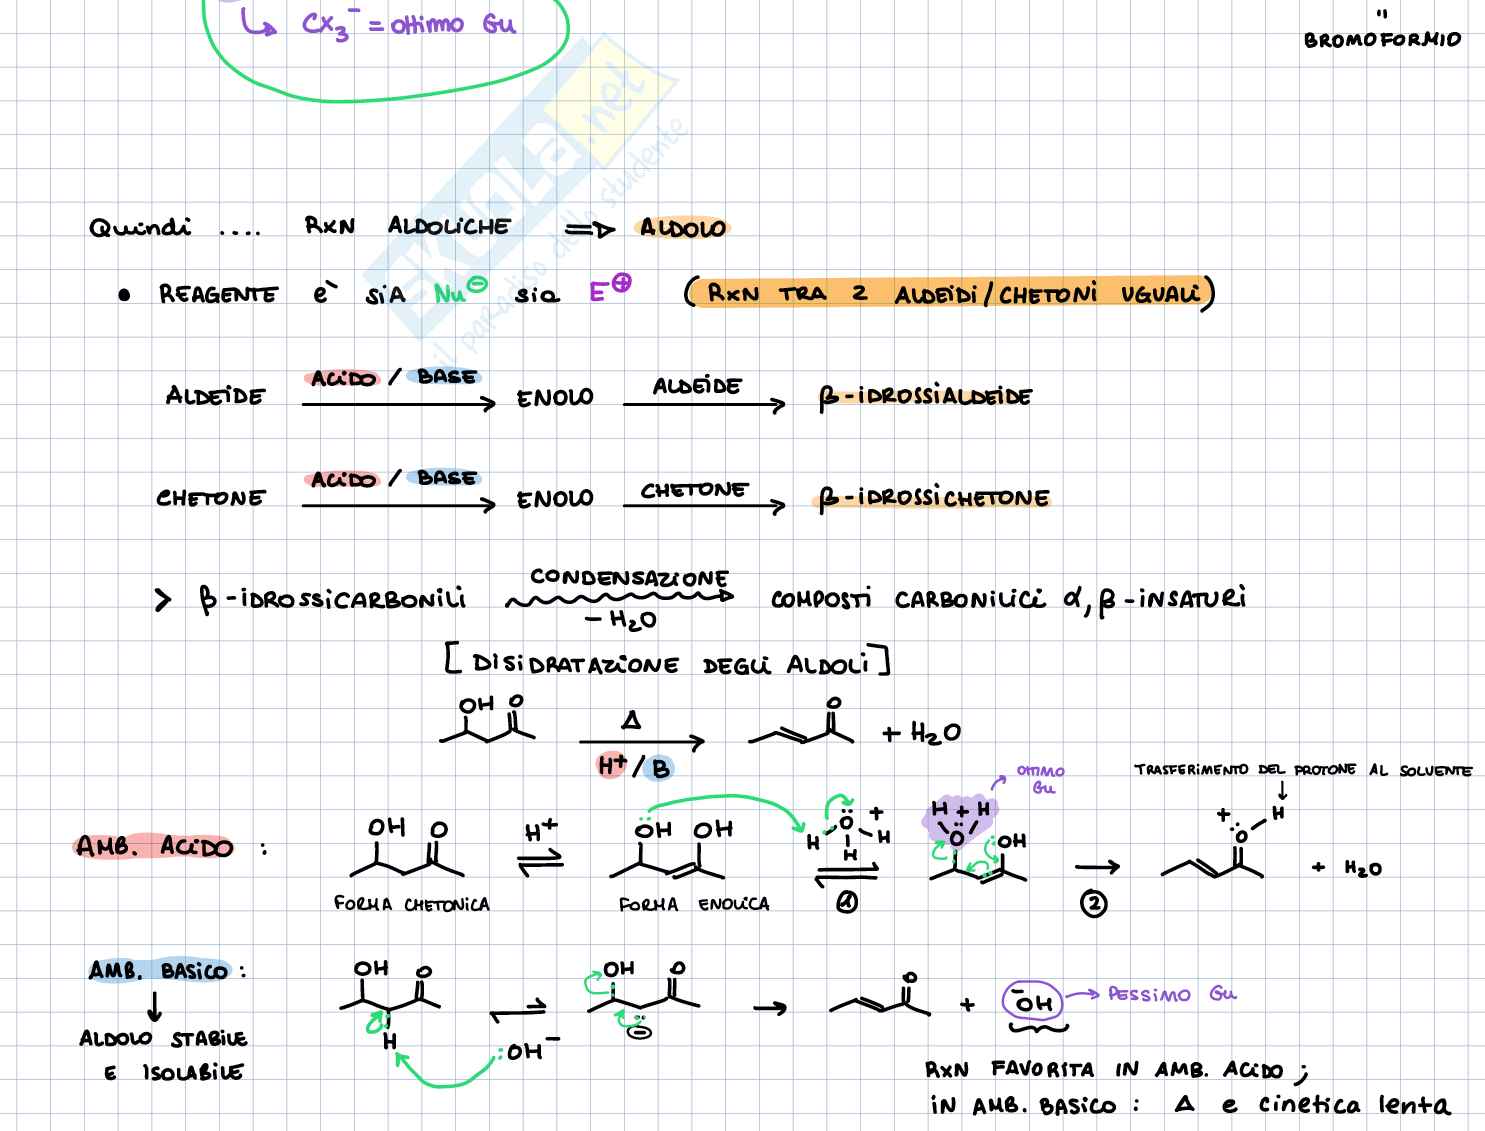 ↳ CX3⁻ = ottimo GU
"
BROMOFORMIO
EKUOLA.net
il paradiso dello studente
Quindi .... RXN ALDOLICHE ⇒ ALDOLO
• REAGENTE e` SIA Nu⊖ sia E⊕ (RXN TRA 2 ALDEIDI/CHETONI UGUALI)
ALDEIDE ACIDO / BASE → ENOLO ALDEIDE → β-IDROSSIALDEIDE
CHETONE ACIDO / BASE → ENOLO CHETONE → β-IDROSSICHETONE
> β-IDROSSICARBONILI CONDENSAZIONE - H2O → COMPOSTI CARBONILICI α,β-INSATURI
[DISIDRATAZIONE DEGLI ALDOLI]
OH O Δ H⁺/B → O + H2O
OTTIMO GU
TRASFERIMENTO DEL PROTONE AL SOLVENTE
AMB. ACIDO : OH O H⁺ ⇌ OH OH H O H H + ⇌ H + H O OH → + O H + H2O
FORMA CHETONICA FORMA ENOLICA 1 2
AMB. BASICO : OH O H ⇌ :OH⁻ OH O ⊖ → O + ⁻OH → PESSIMO GU
↓
ALDOLO STABILE
E ISOLABILE
RXN FAVORITA IN AMB. ACIDO ;
IN AMB. BASICO : Δ e cinetica lenta